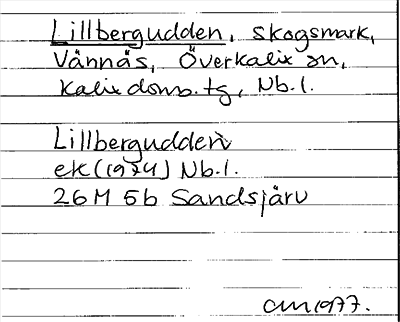 Lillbergudden, skogsmark,
Vännäs, Överkalix sn,
Kalix doms.tg, Nb.l.
Lillbergudden
ek (1974) Nb.l.
26M 5b Sandsjärv
1977.